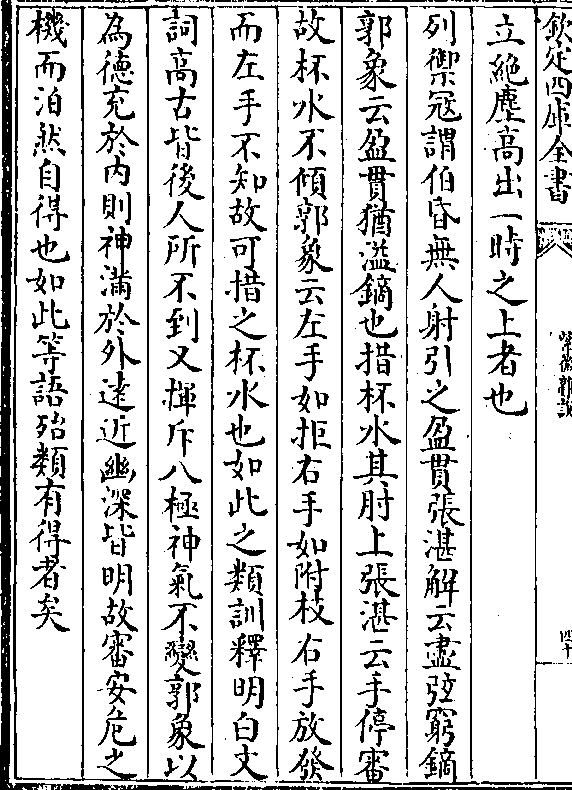 欽定四庫全書
紫微雜說
四十
立絶塵高出一時之上者也
列禦冦謂伯昏無人射引之盈貫張湛解云盡弦窮鏑
郭象云盈貫猶溢鏑也措杯水其肘上張湛云手停審
故杯水不傾郭象云左手如拒右手如附枝右手放發
而左手不知故可措之杯水也如此之類訓釋明白文
詞高古皆後人所不到又揮斥八極神氣不變郭象以
為德充於内則神滿於外逺近幽深皆明故審安危之
機而泊然自得也如此等語殆類有得者矣